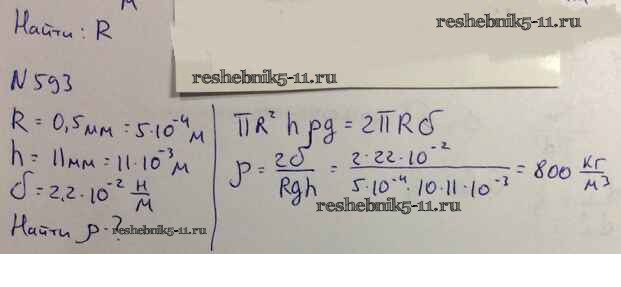 Найти: R
reshebnik5-11.ru
reshebnik5-11.ru
N 593
R = 0,5 мм = 5·10⁻⁴ м
h = 11 мм = 11·10⁻³ м
σ = 2,2·10⁻² Н/м
Найти ρ-?
reshebnik5-11.ru
πR² hρg = 2πRσ
ρ = 2σ/Rgh = 2·22·10⁻²/5·10⁻⁴·10·11·10⁻³ = 800 кг/м³
reshebnik5-11.ru